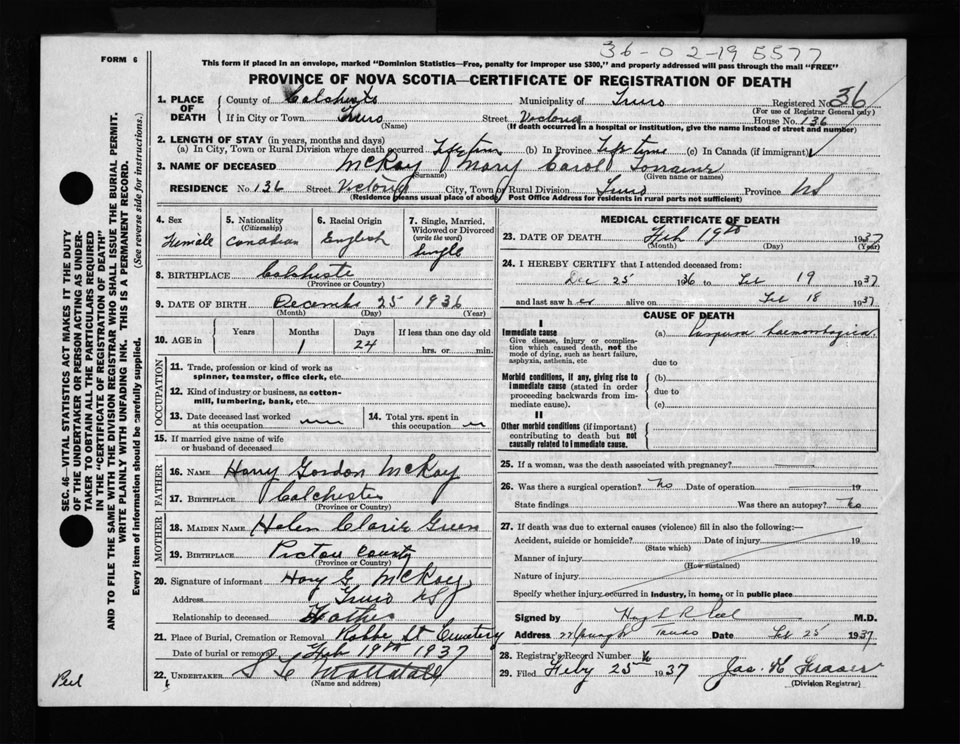 36-02-19 5577
FORM 6
This form if placed in an envelope, marked "Dominion Statistics—Free, penalty for improper use $300," and properly addressed will pass through the mail "FREE"
PROVINCE OF NOVA SCOTIA—CERTIFICATE OF REGISTRATION OF DEATH
SEC. 46—VITAL STATISTICS ACT MAKES IT THE DUTY
OF THE UNDERTAKER OR PERSON ACTING AS UNDER-
TAKER TO OBTAIN ALL THE PARTICULARS REQUIRED
IN THE "CERTIFICATE OF REGISTRATION OF DEATH"
AND TO FILE THE SAME WITH THE DIVISION REGISTRAR WHO SHALL ISSUE THE BURIAL PERMIT.
WRITE PLAINLY WITH UNFADING INK. THIS IS A PERMANENT RECORD.
Every item of Information should be carefully supplied. (See reverse side for instructions.)
1. PLACE OF DEATH County of Colchester Municipality of Truro Registered No. 36
(For use of Registrar General only)
If in City or Town Truro Street Victoria House No. 136
(Name) (If death occurred in a hospital or institution, give the name instead of street and number)
2. LENGTH OF STAY (in years, months and days)
(a) In City, Town or Rural Division where death occurred Life time (b) In Province Life time (c) In Canada (if immigrant)
3. NAME OF DECEASED McKay Mary Carol Lorraine
(Surname) (Given name or names)
RESIDENCE No. 136 Street Victoria City, Town or Rural Division Truro Province NS
(Residence means usual place of abode. Post Office Address for residents in rural parts not sufficient)
4. Sex Female
5. Nationality (Citizenship) Canadian
6. Racial Origin English
7. Single, Married, Widowed or Divorced (write the word) Single
8. BIRTHPLACE Colcheste
(Province or County)
9. DATE OF BIRTH December 25 1936
(Month) (Day) (Year)
10. AGE in Years Months 1 Days 24 If less than one day old hrs. or min.
OCCUPATION
11. Trade, profession or kind of work as spinner, teamster, office clerk, etc.
12. Kind of industry or business, as cotton-mill, lumbering, bank, etc.
13. Date deceased last worked at this occupation
14. Total yrs. spent in this occupation
15. If married give name of wife or husband of deceased
FATHER
16. NAME Harry Gordon McKay
17. BIRTHPLACE Colchester
(Province or County)
MOTHER
18. MAIDEN NAME Helen Green
19. BIRTHPLACE Pictou County
(Province or County)
20. Signature of informant Harry G McKay
Address Truro NS
Relationship to deceased Father
21. Place of Burial, Cremation or Removal Robie St Cemetery
Date of burial or removal Feb 19th 1937
22. UNDERTAKER Mattatall
(Name and address)
MEDICAL CERTIFICATE OF DEATH
23. DATE OF DEATH Feb 19th 1937
(Month) (Day) (Year)
24. I HEREBY CERTIFY that I attended deceased from:
Dec 25 1936 to Feb 19 1937
and last saw her alive on Feb 18 1937
CAUSE OF DEATH
I
Immediate cause (a) Purpura haemorrhagica
Give disease, injury or complication which caused death, not the mode of dying, such as heart failure, asphyxia, asthenia, etc
due to
Morbid conditions, if any, giving rise to immediate cause (stated in order proceeding backwards from immediate cause). (b)
due to
(c)
II
Other morbid conditions (if important) contributing to death but not causally related to Immediate cause.
25. If a woman, was the death associated with pregnancy?
26. Was there a surgical operation? No Date of operation 19
State findings Was there an autopsy? No
27. If death was due to external causes (violence) fill in also the following:—
Accident, suicide or homicide? Date of injury 19
(State which)
Manner of injury
(How sustained)
Nature of injury
Specify whether injury occurred in industry, in home, or in public place
Signed by Peel M.D.
Address Truro Date Feb 25 1937
28. Registrar's Record Number
29. Filed Feby 25th 1937 Jas. Fraser
(Division Registrar)